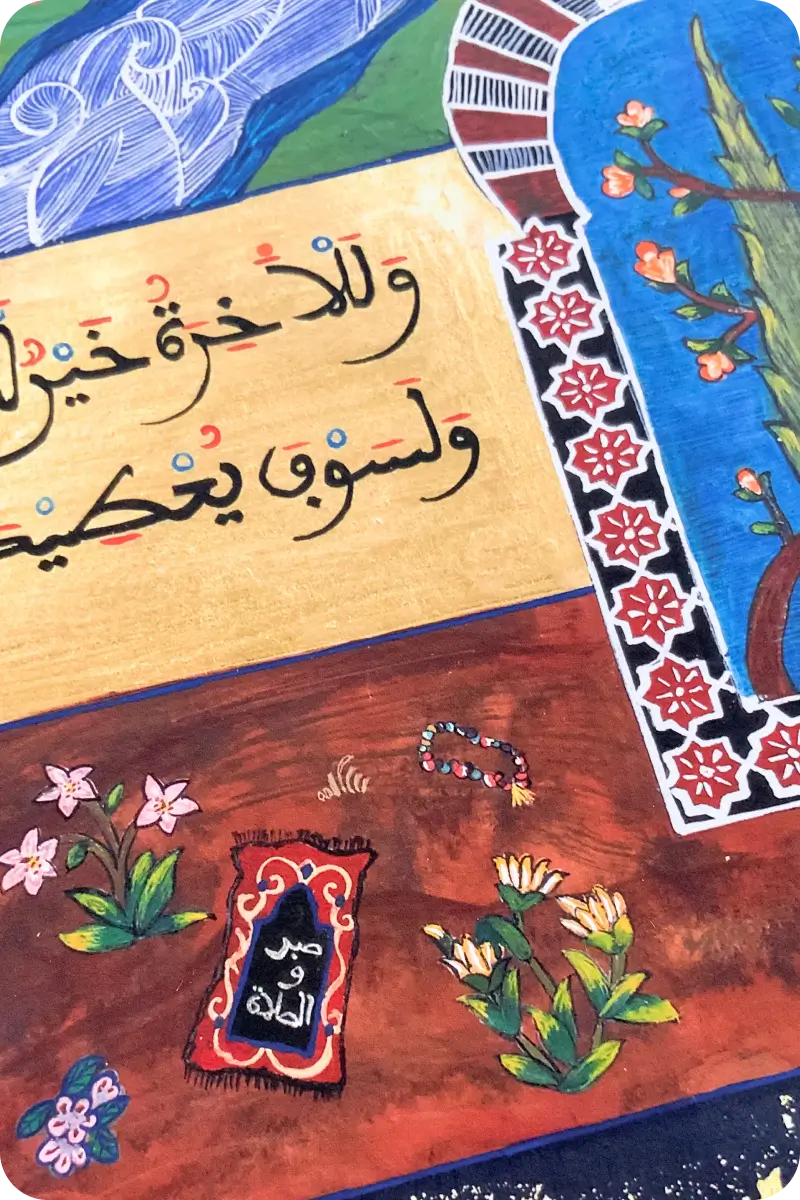 وَلَلْآخِرَةُ خَيْرٌ
وَلَسَوْفَ يُعْطِيـ
صبر
و
الصلاة